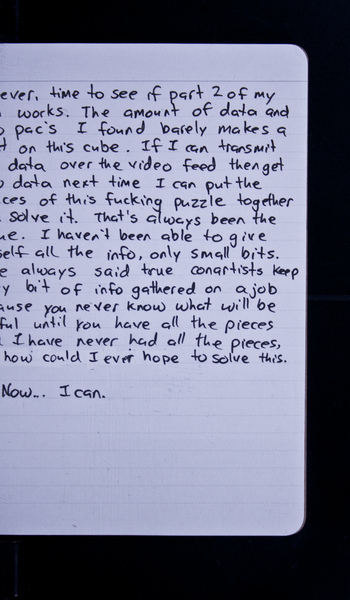 ever, time to see if part 2 of my
works. The amount of data and
pac's I found barely makes a
on this cube. If I can transmit
data over the video feed then get
data next time I can put the
ces of this fucking puzzle together
solve it. That's always been the
me. I haven't been able to give
self all the info, only small bits.
e always said true conartists keep
y bit of info gathered on a job
ause you never know what will be
ful until you have all the pieces
I have never had all the pieces,
how could I ever hope to solve this.
Now... I can.